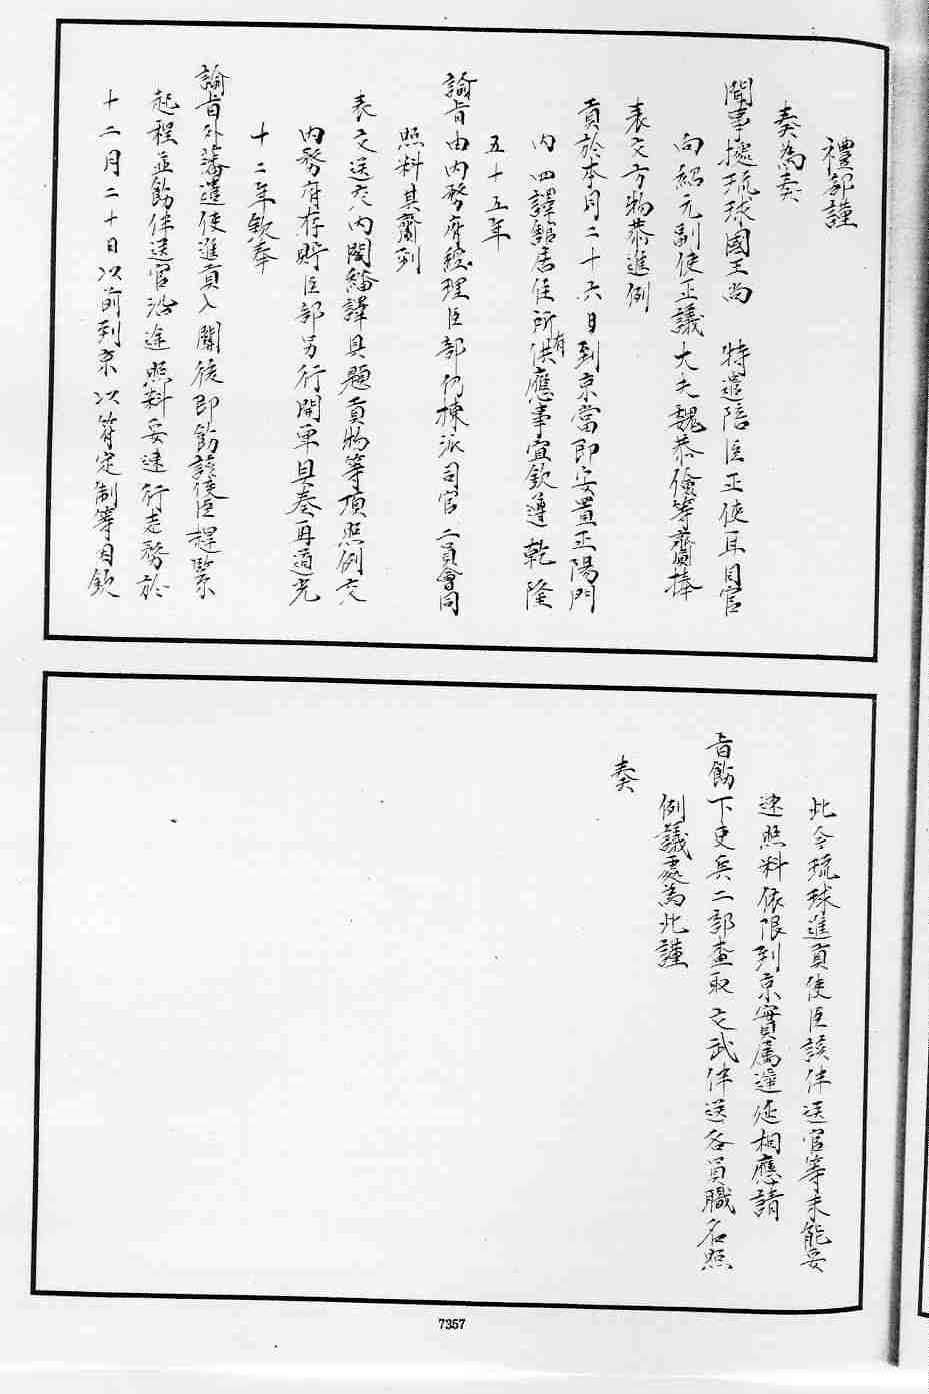 禮部謹
奏為奏
聞事據琉球國王尚　特遣陪臣正使耳目官
向紹元副使正議大夫魏恭儉等賫捧
表文方物恭進例
貢於本月二十六日到京當即安置正陽門
內四譯館居住所有供應事宜欽遵乾隆
五十五年
諭旨由內務府經理臣部仍揀派司官二員會同
照料其齎到
表文送交內閣繙譯具題貢物等項照例交
內務府存貯臣部另行開單具奏再道光
十二年欽奉
諭旨外藩遣使進貢入關後即飭該使臣趕緊
起程並飭伴送官沿途照料妥速行走務於
十二月二十日以前到京以符定制等因欽
此今琉球進貢使臣該伴送官等未能妥
速照料依限到京實屬遲延相應請
旨飭下吏兵二部查取文武伴送各員職名照
例議處為此謹
奏
7357